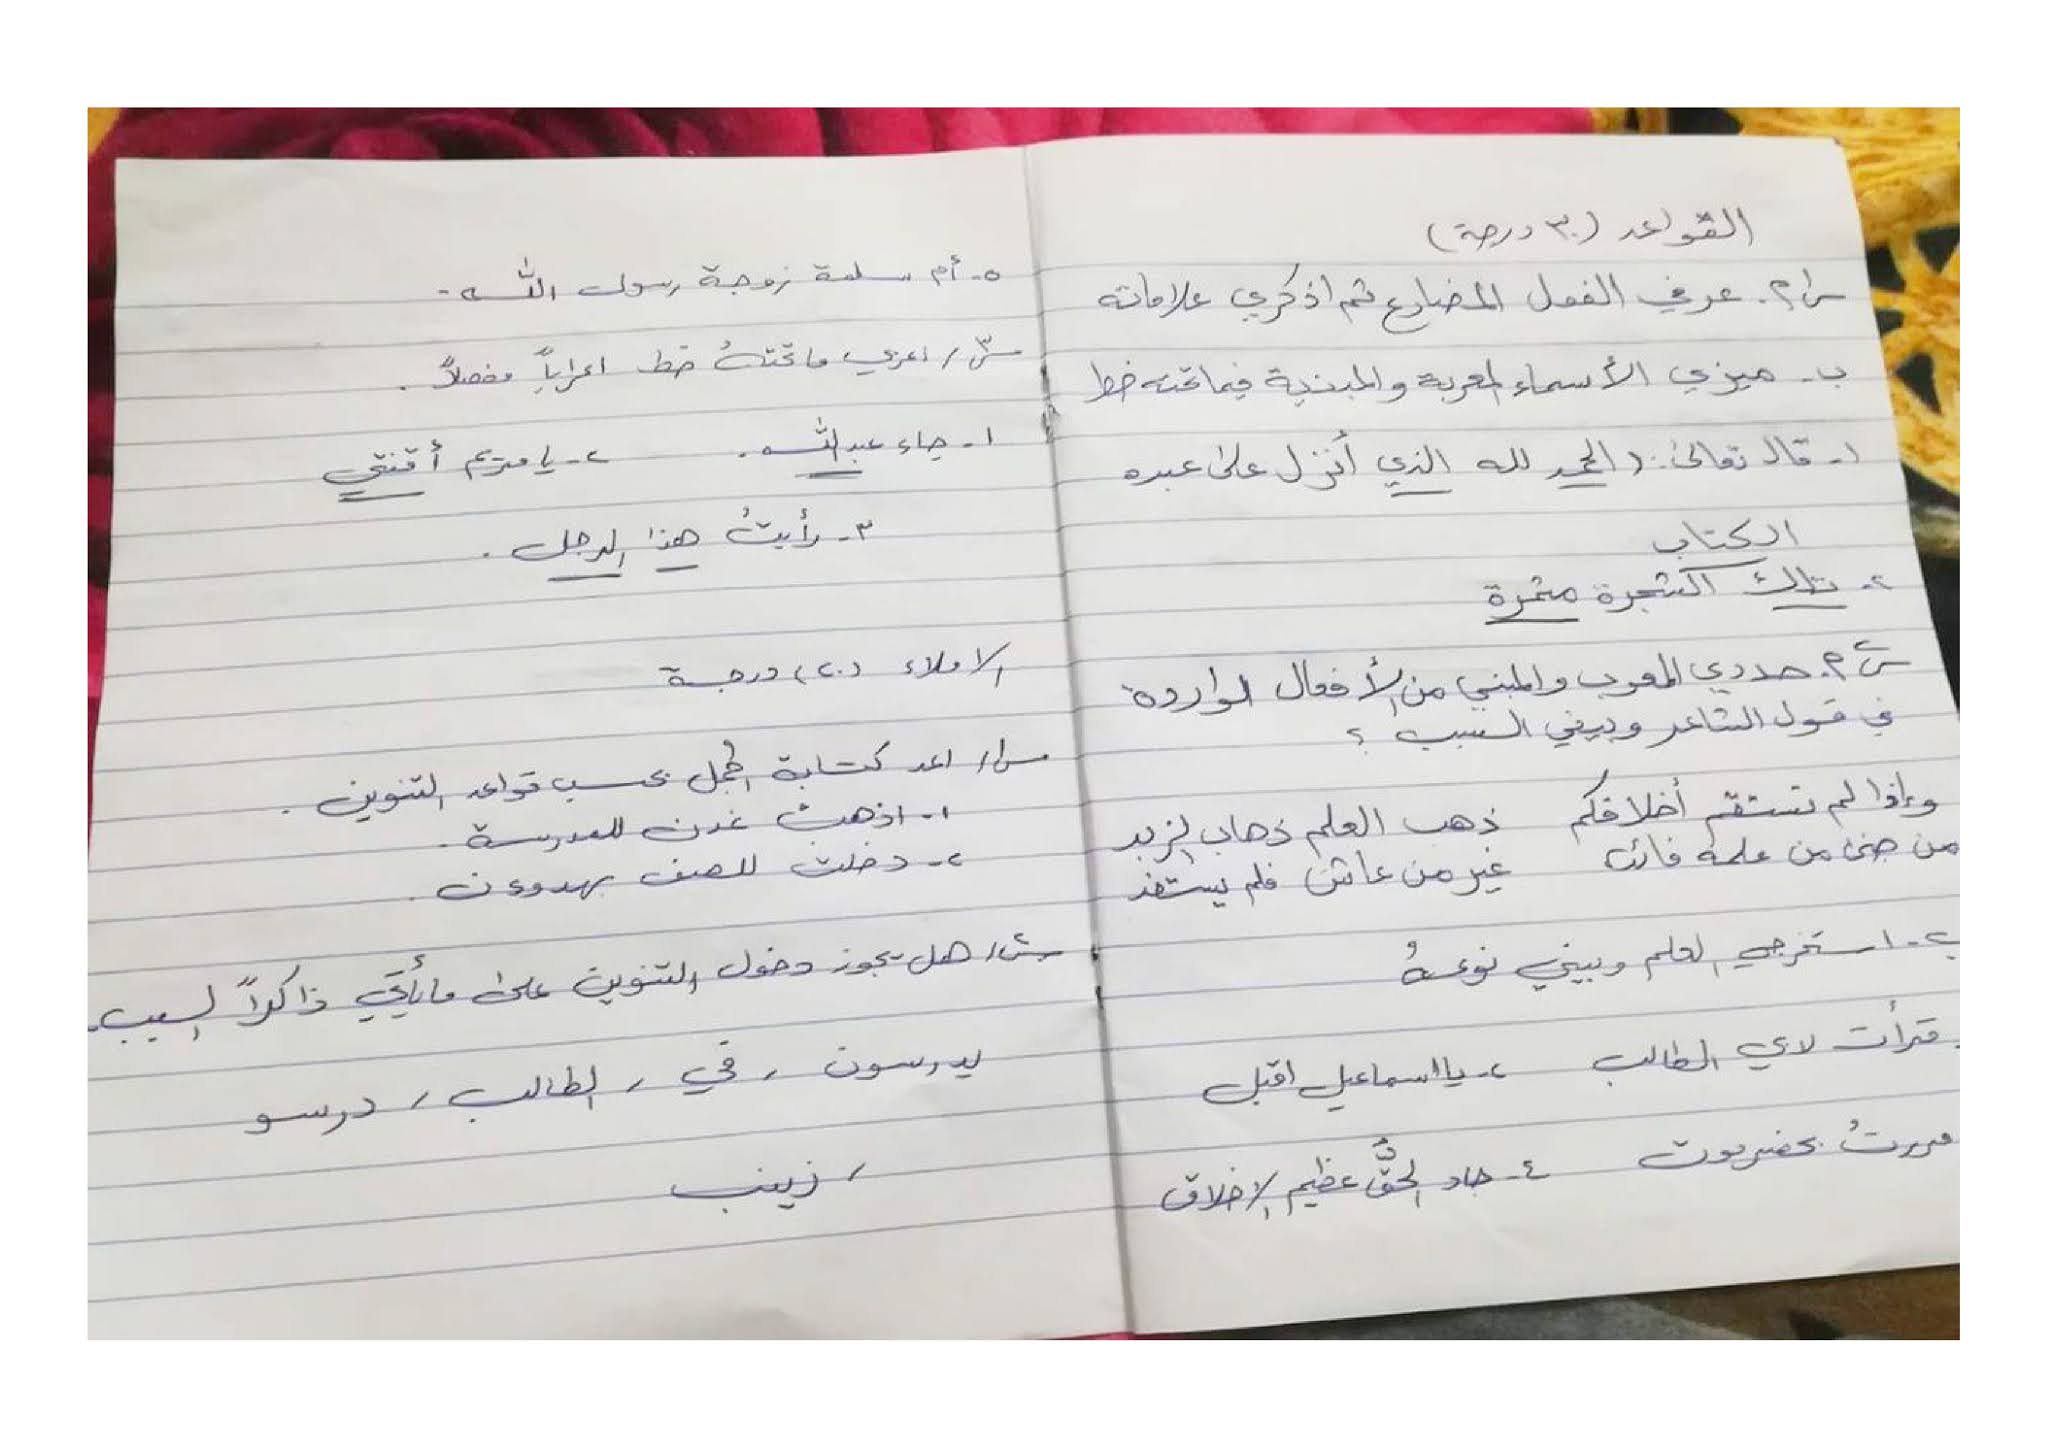 القواعد (٣٠ درجة)
س١/ م. عرفي الفعل المضارع ثم اذكري علاماته
ب- ميزي الأسماء المعربة والمبنية فيما تحته خط
١- قال تعالى: (الحمد لله الذي أنزل على عبده
الكتاب
٢- تلك الشجرة مثمرة
س٢/ م. حددي المعرب والمبني من الأفعال الواردة
في قول الشاعر وبيني السبب ؟
وإذا لم تستقم أخلاقكم ذهب العلم ذهاب الزبد
من جنى من علمه فائدة غير من عاش فلم يستفد
ب- استخرجي العلم وبيني نوعهُ
قرأت لاي الطالب ٢- يا اسماعيل اقبل
مررتُ بحضرموت ٤- جاد الحقُّ عظيم الاخلاق
٥- أم سلمة زوجة رسول الله.
س٣/ اعربي ما تحتهُ خط اعراباً مفصلاً.
١- جاء عبدالله. ٢- يا مريم أقنتي
٣- رأيتُ هذا الرجل.
الاملاء (٢٠) درجة
س١/ اعد كتابة الجمل بحسب قواعد التنوين.
١- اذهبُ غدن للمدرسة.
٢- دخلت للصف بهدوءن.
س٢/ هل يجوز دخول التنوين على ما يأتي ذاكراً السبب.
يدرسون / في / الطالب / درسو
/ زينب